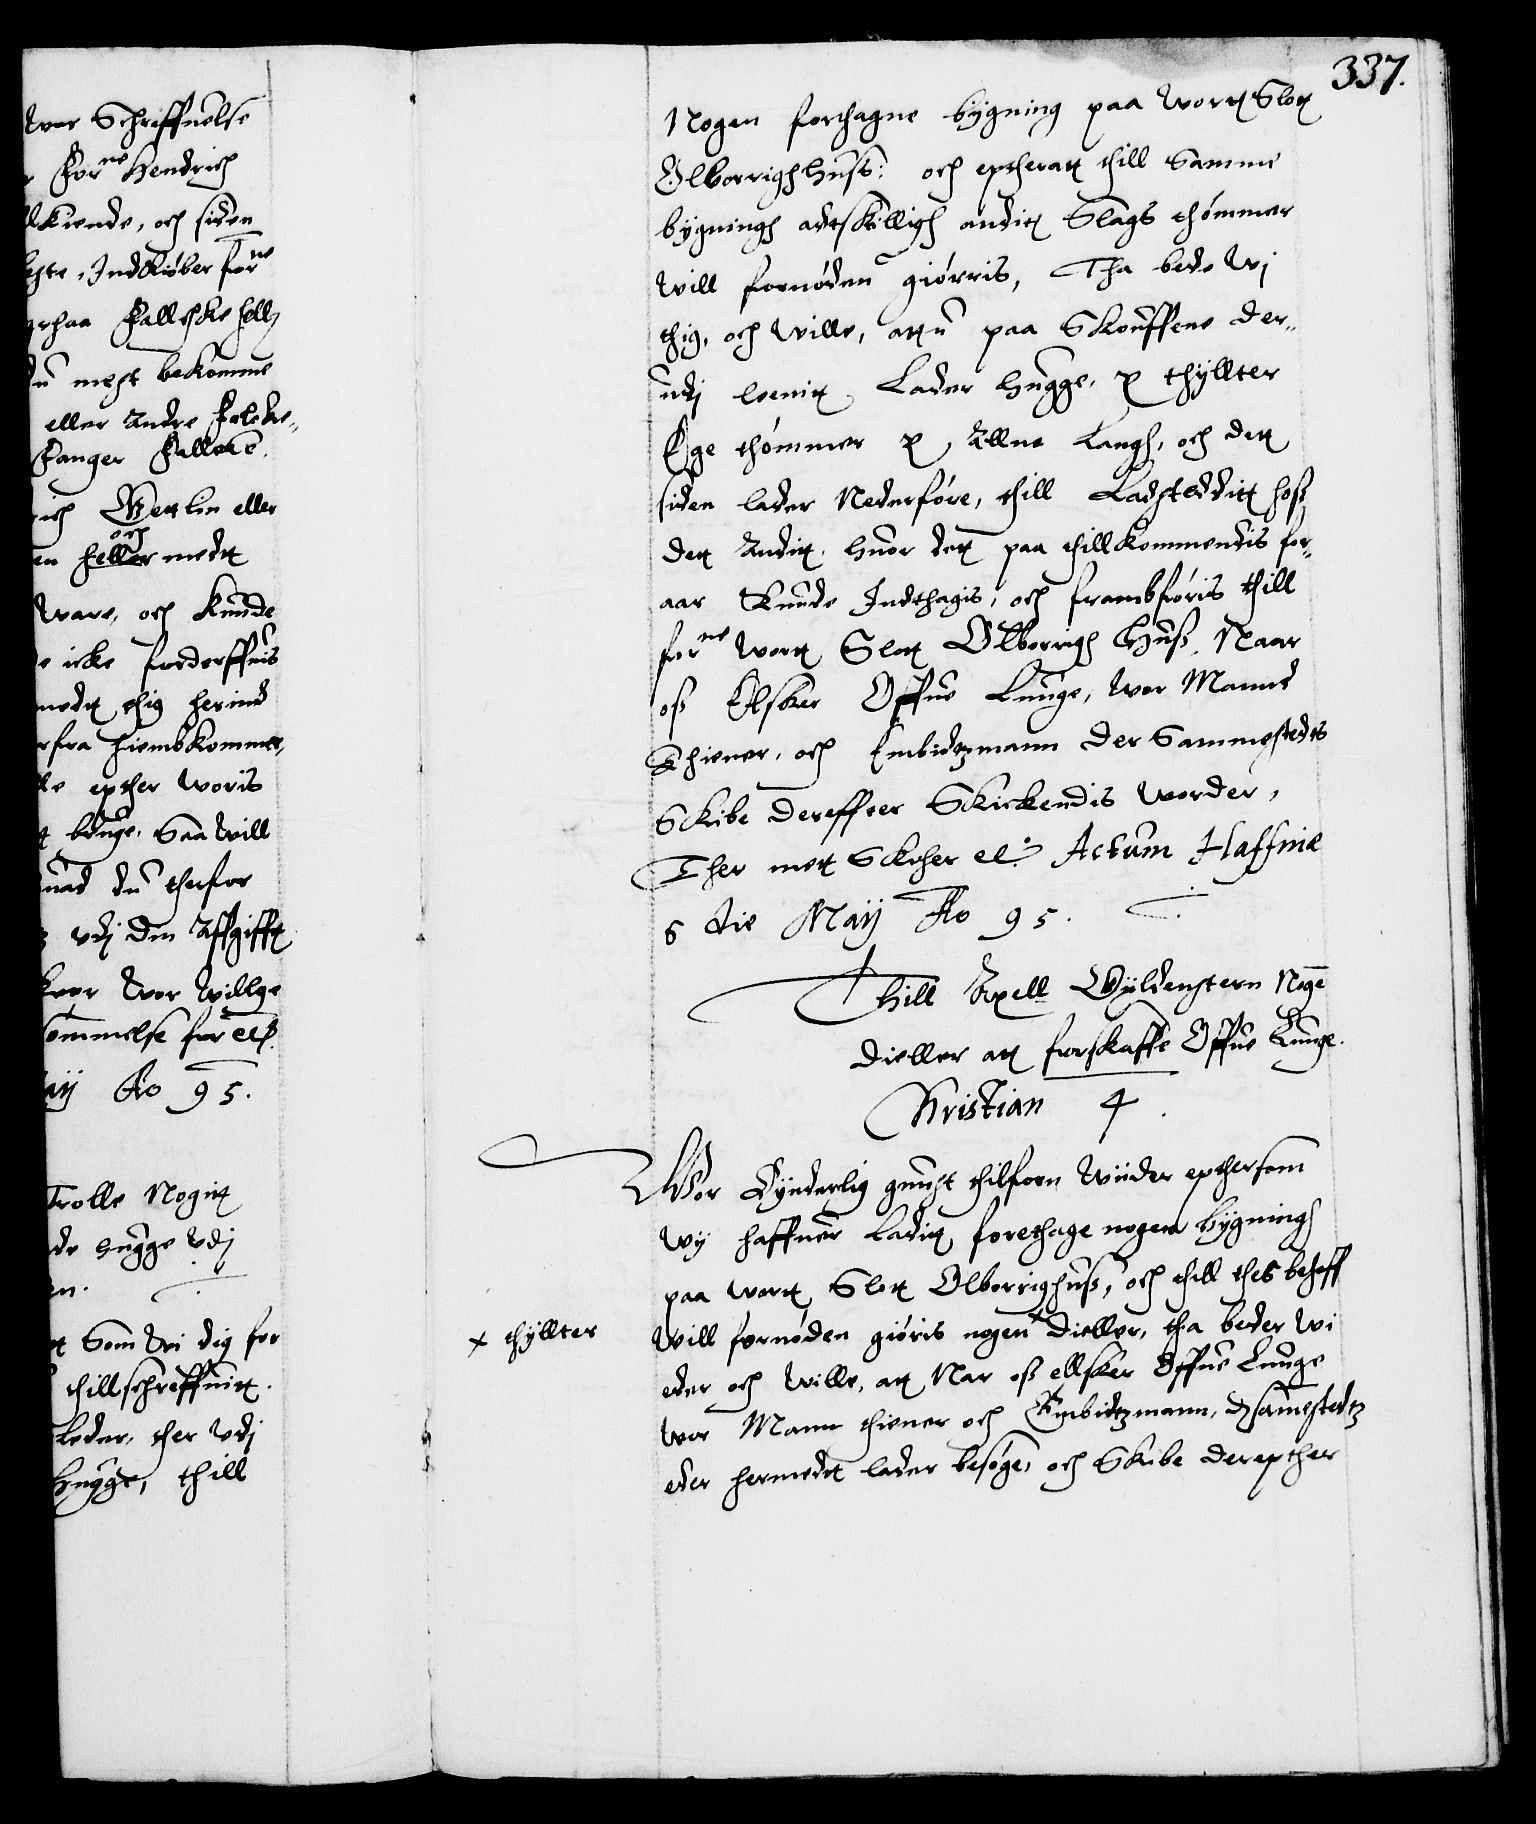 War Schriffuelse
For^ne Hendrich
kiende, och siden
Indkiøber for^ne
Falcke
du mest bekomme
eller Andre Falcke„
Fanger Falcke
eller
och
en heller medt
Ware, och kunde
icke forderffuis
medt thig herind
fra hiembkomme,
epther woris
bruge, Saa Will
huad du therfor
udj din Affgifft
Wor Willge
for ell
Maij Ao 95.
Trolle Nogit
hugge Udj
en.
Som Wi dig for
thillschreffuit.
Leder, ther Udj
Hugge, thill
337.
Nogen forthagne bygning paa Wortt Slott
Olborrighhuss: och eptheratt thill Samme
bygningh adtskilligh anditt Slags thømmer
Will fornøden giørris, Tha bede Wj
thig, och Wille, att du paa Skouffene der„
udj leenit Lader hugge, x thyllter
Ege thømmer x Allne Langh, och dett
siden lader Nederføre, thill Ladsteddit hoss
dett Andit, huor dett paa thillkommendis for„
aar Kunde Indthagis, och frambføris thill
for^ne Wortt Slott Olborrigh Huss, Naar
oss Elsker Offue Lunge, Wor Mand
Thiener, och Embidtzmann der Sammestedts
Skibe dereffter Skickendis worder,
Ther mett Skeher etc. Actum Haffniæ
6 die Maij Ao 95.
Thill Axell Gyldenstern Noge
dieller att forskaffe Offue Lunge.
Christian 4.
Wor Synderlig gunst thilforn Wiider epthersom
Wy haffuer Ladit forethage nogen bygningh
paa Wortt Slott Olborrighuss, och thill thes behoff
x thyllter
Will fornøden giøris nogen x dieller, tha beder Wi
eder och Wille, att Nar oss ellsker Offue Lunge
wor Mann thiener och Embidtzmann, dersamestedtz
eder hermedt lader besøge, och Skibe derepther